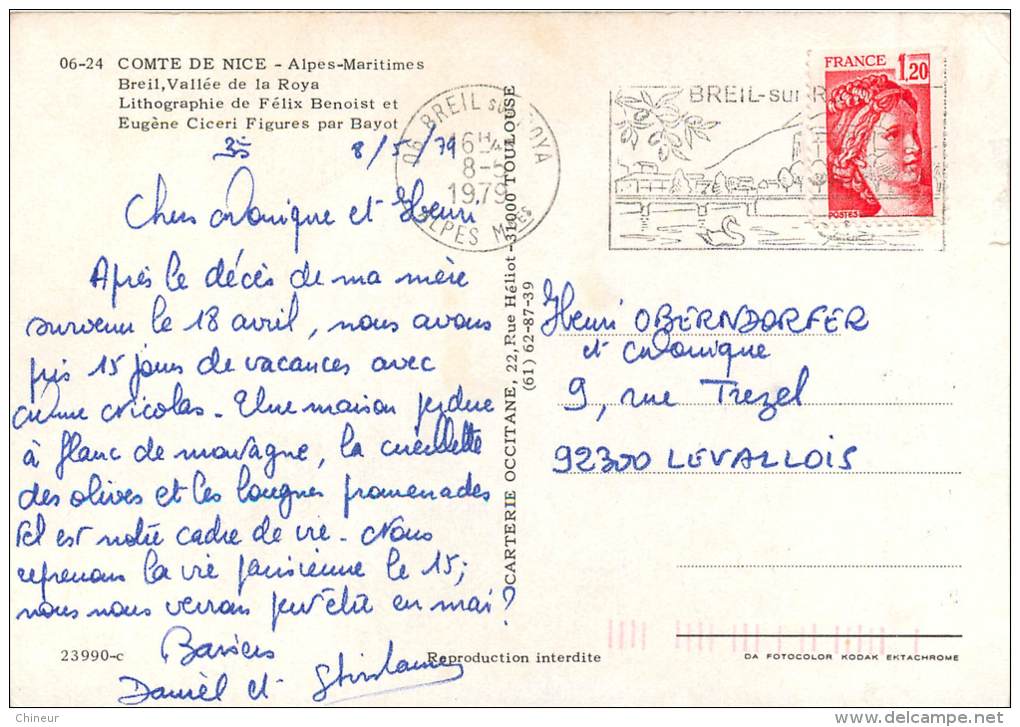 06-24 COMTE DE NICE - Alpes-Maritimes
Breil, Vallée de la Roya
Lithographie de Félix Benoist et
Eugène Ciceri Figures par Bayot
8/5/79
06 BREIL sur ROYA
16H
8-5
1979
ALPES Mmes
BREIL-sur-R
FRANCE
1,20
POSTES
Chers Monique et Henri
Après le décès de ma mère
survenu le 18 avril, nous avons
pris 15 jours de vacances avec
Nicolas. Une maison perdue
à flanc de montagne, la cueillette
des olives et les longues promenades
tel est notre cadre de vie. Nous
reprenons la vie parisienne le 15;
nous nous verrons peut'être en mai?
Baisers
Daniel et Ghislaine
CARTERIE OCCITANE, 22, Rue Héliot - 31000 TOULOUSE
(61) 62-87-39
Henri OBERNDORFER
et Monique
9, rue Trezel
92300 LEVALLOIS
23990-c
Reproduction interdite
DA FOTOCOLOR KODAK EKTACHROME
Chineur
delcampe.net